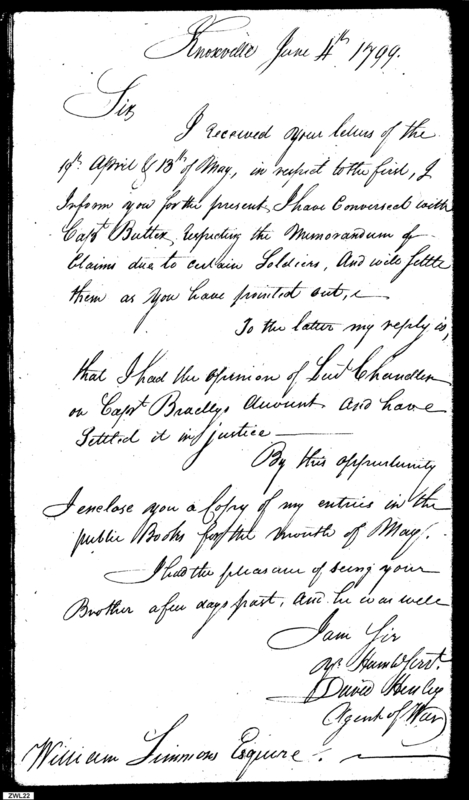 Knoxville June 4th 1799.
Sir,
I received your letters of the
19th. April & 13th of May, in respect to the first, I
Inform you for the present, I have Conversed with
Capt. Butler, respecting the Memorandum of
Claims due to certain Soldiers, And will settle
them as you have pointed out,
To the latter my reply is,
that I had the opinion of Lieut. Chandler
on Capt. Bradleys Account and have
Settled it in justice
By this oppurtunity
I enclose you a Copy of my entries in the
public Books for the month of May.
I had the pleasure of seing your
Brother a few days past, And he was well
I am Sir
Yr. Humb Servt.
David Henley
Agent of War
William Simmons Esquire.
ZWL22